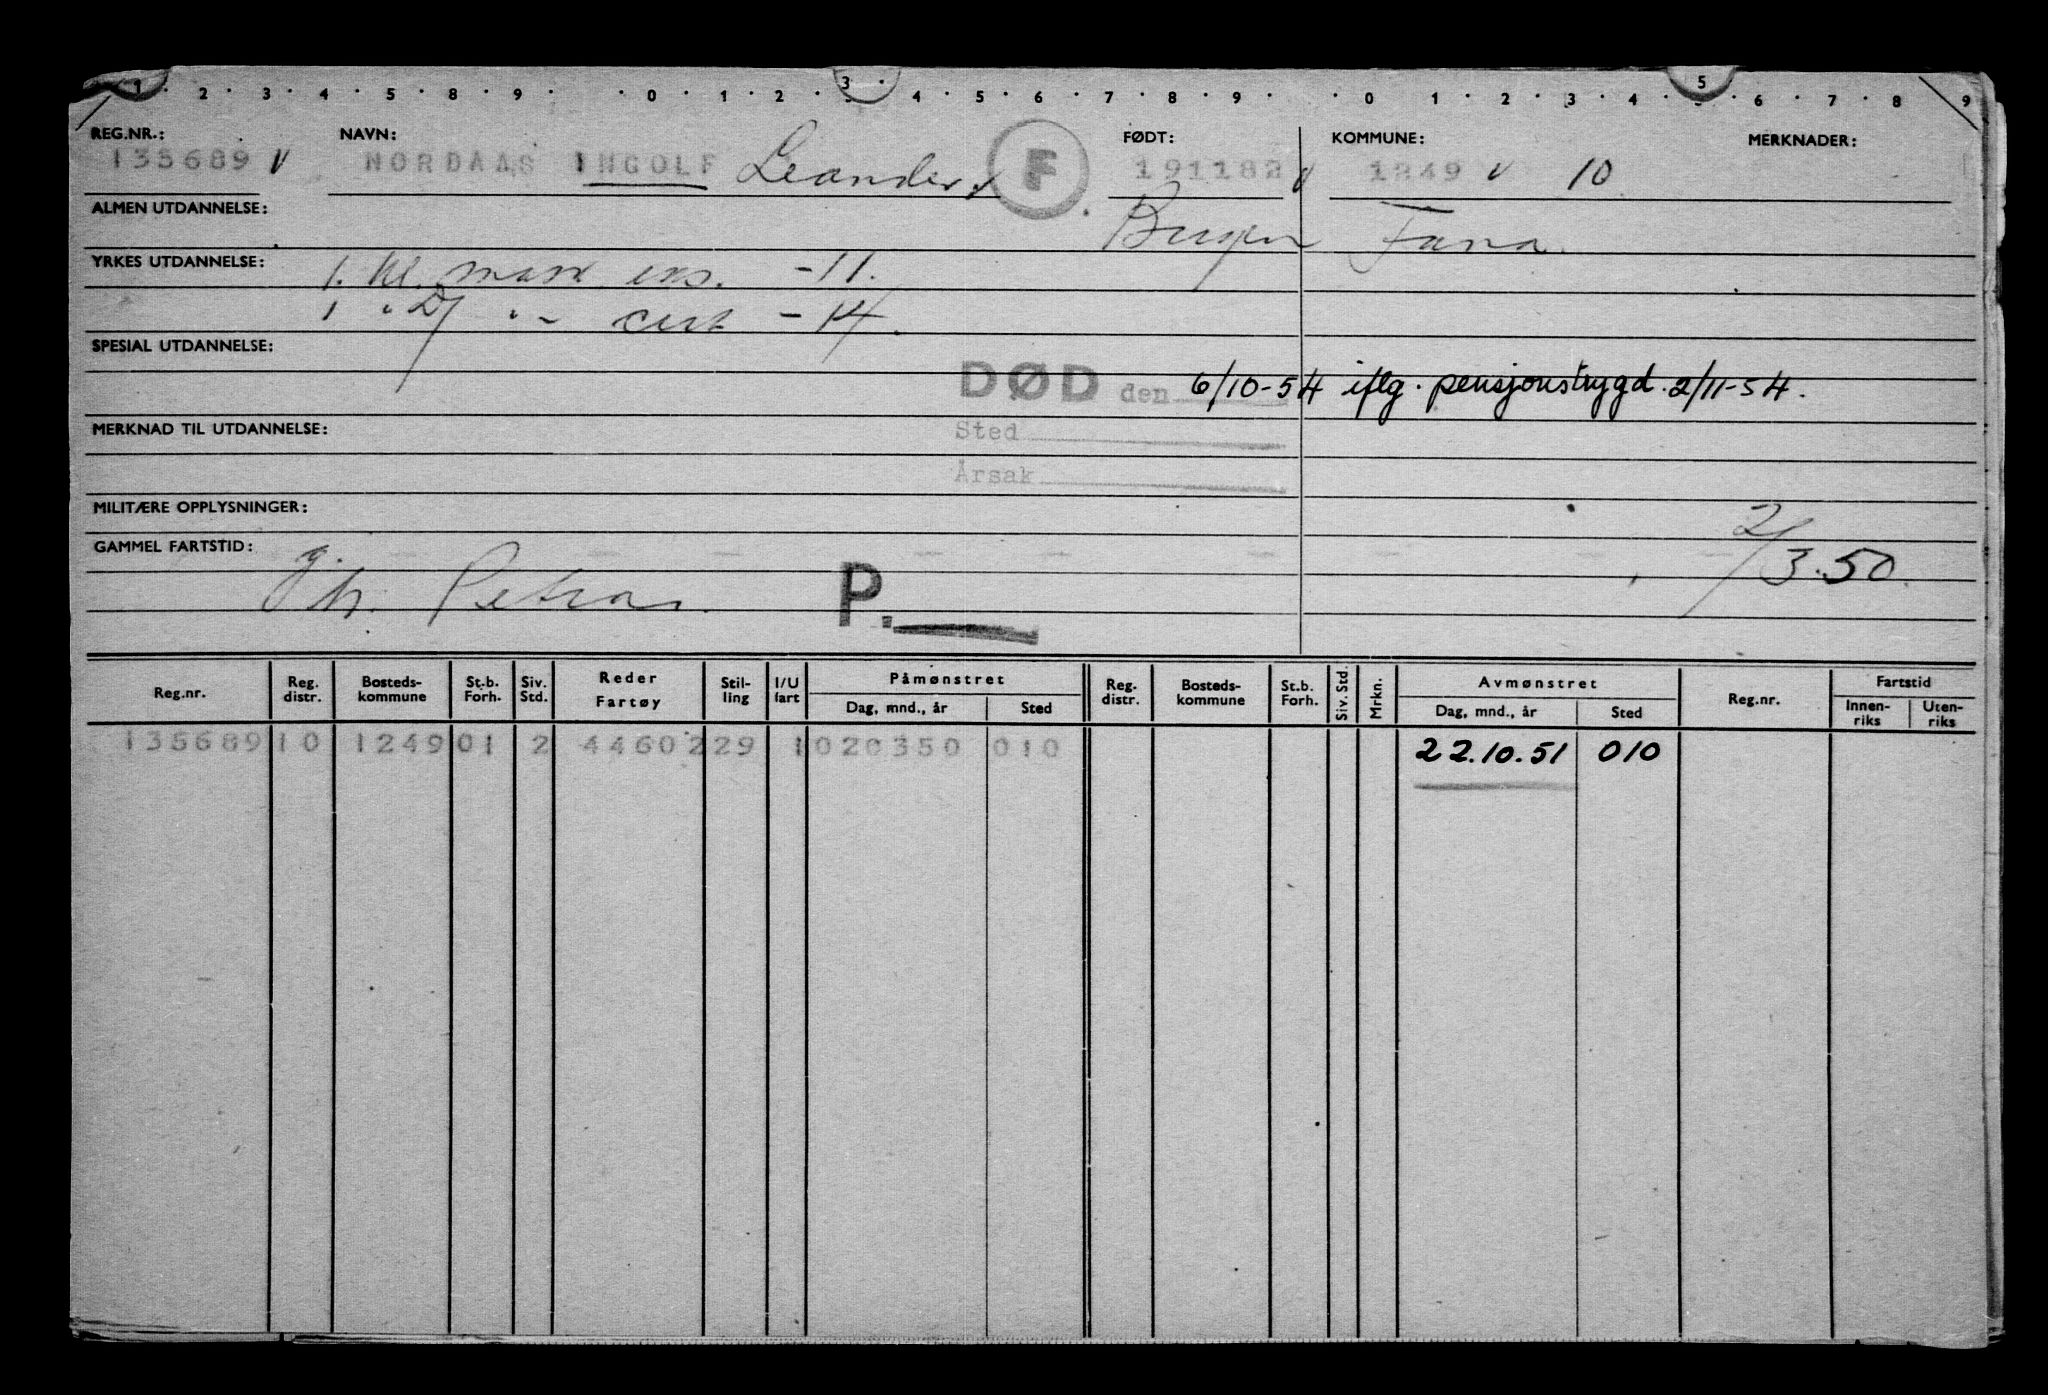 1 2 3 4 5 8 9 0 1 2 3 4 5 6 7 8 9 0 1 2 3 4 5 6 7 8 9
REG.NR.: NAVN: FØDT: KOMMUNE: MERKNADER:
135689 v NORDAAS INGOLF Leander F 191182 v 1249 v 10
ALMEN UTDANNELSE: Bergen Fana
YRKES UTDANNELSE: 1. kl. mask. eks. -11.
1 " cert -14.
SPESIAL UTDANNELSE:
DØD den 6/10-54 iflg. pensjonstrygd. 2/11-54.
MERKNAD TIL UTDANNELSE: Sted
Årsak
MILITÆRE OPPLYSNINGER:
GAMMEL FARTSTID: 2/3.50.
P.
Reg.nr. Reg. distr. Bosteds-kommune St.b. Forh. Siv. Std. Reder Fartøy Stil-ling I/U fart Påmønstret Dag, mnd., år Sted Reg. distr. Bosteds-kommune St.b. Forh. Siv. Std. Mrkn. Avmønstret Dag, mnd., år Sted Reg.nr. Fartstid Innen-riks Uten-riks
135689 10 1249 01 2 44602 29 1 020350 010 22.10.51 010